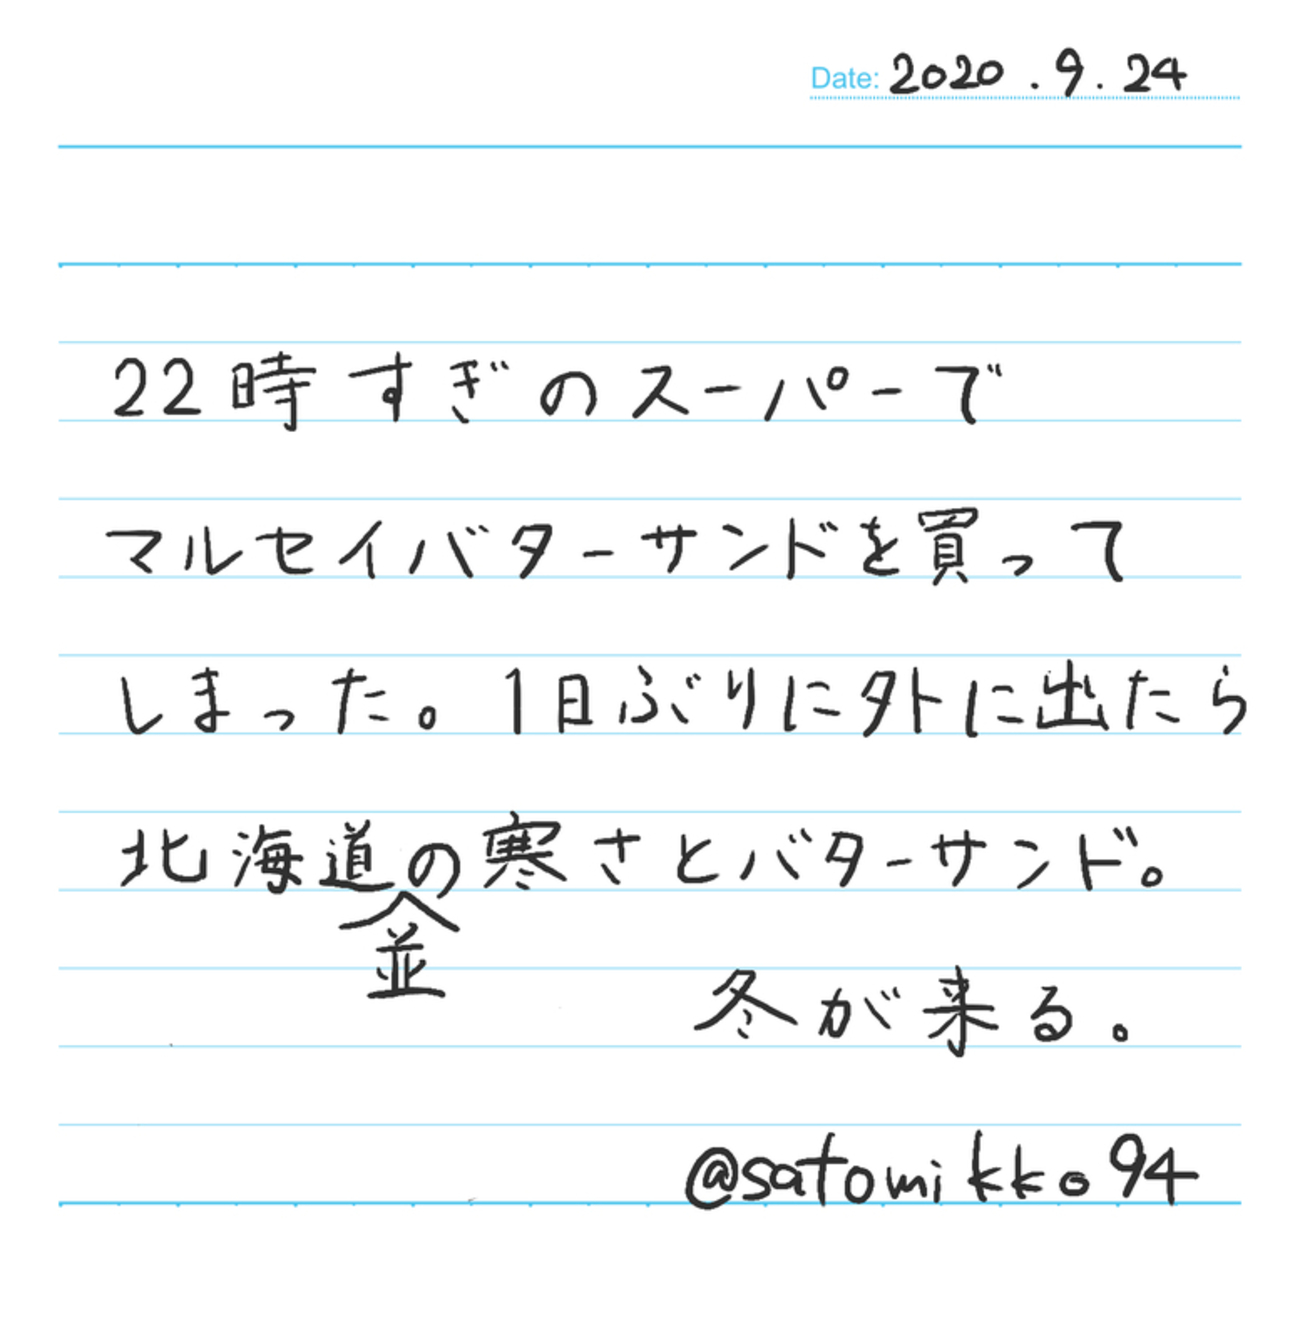 Date: 2020.9.24
22時すぎのスーパーで
マルセイバターサンドを買って
しまった。1日ぶりに外に出たら
北海道の寒さとバターサンド。
冬が来る。
@satomikko94